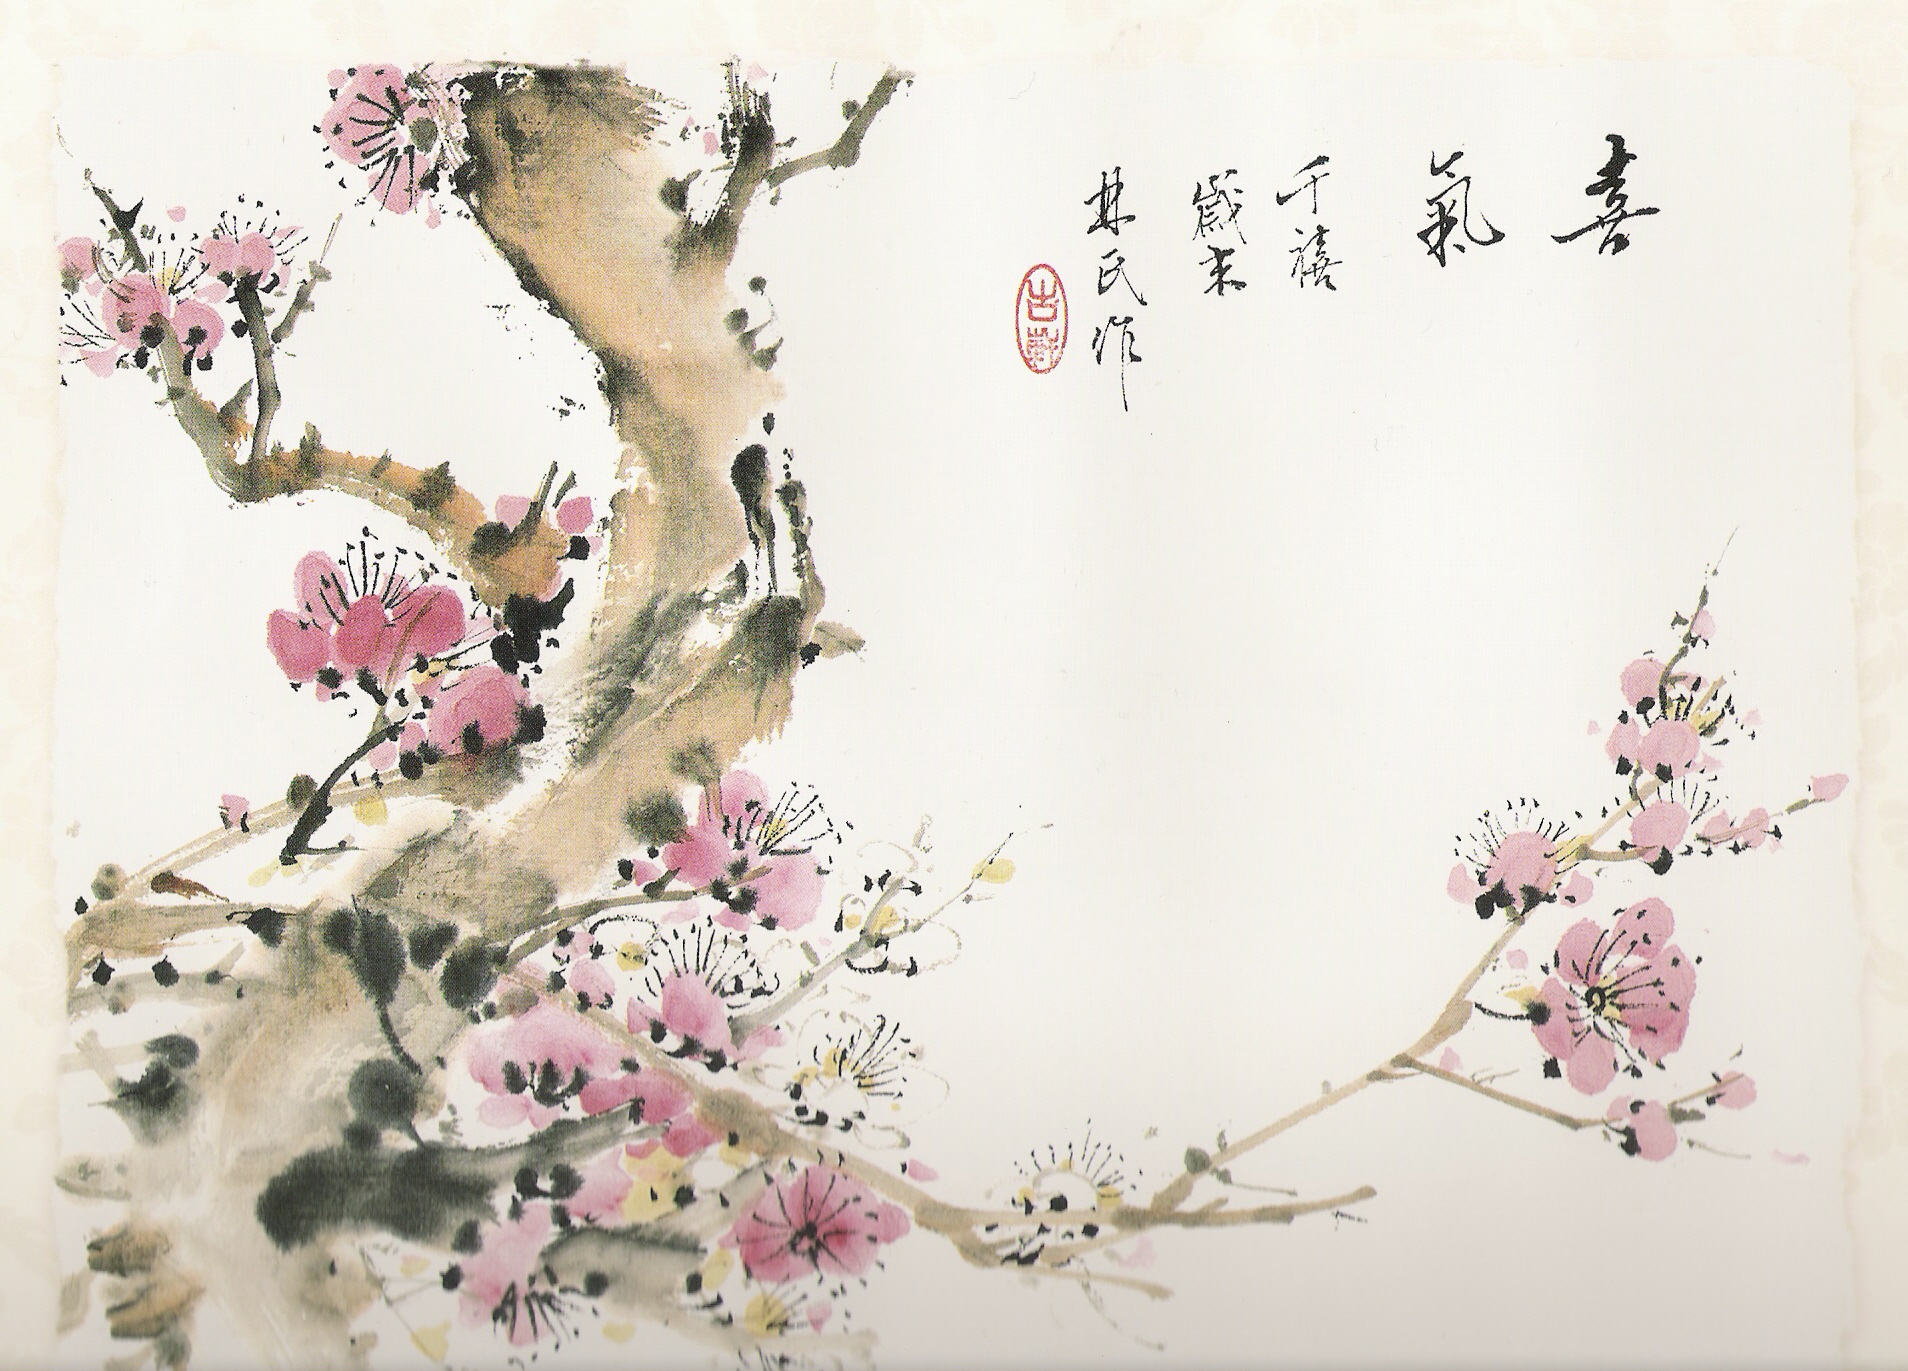 喜氣
千禧
歲末
林氏作
吉